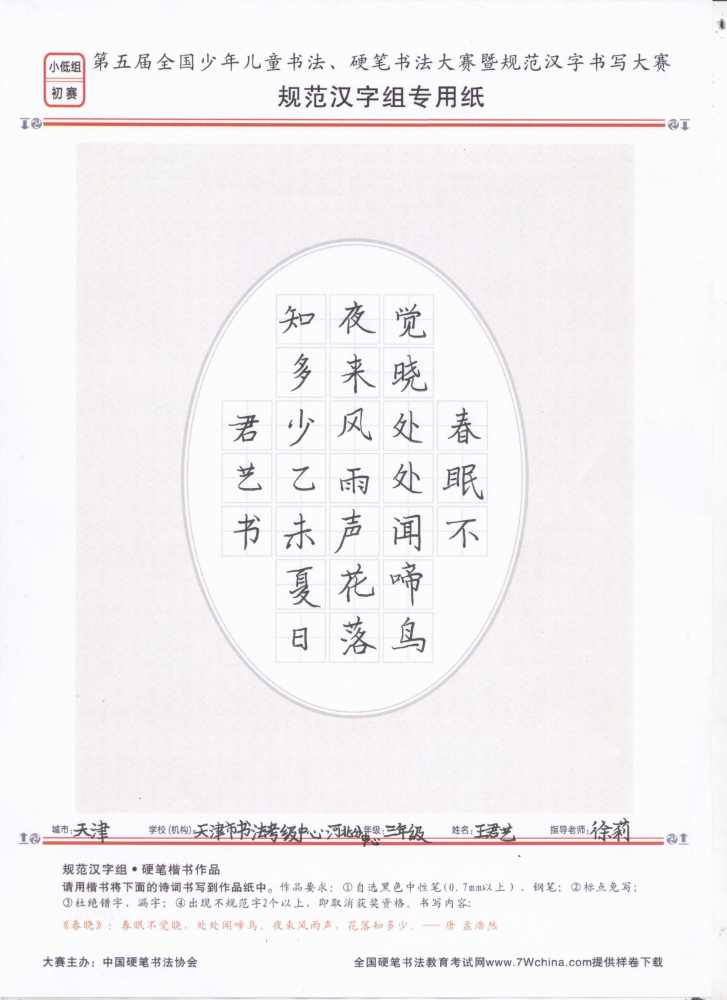 小低组
初赛
第五届全国少年儿童书法、硬笔书法大赛暨规范汉字书写大赛
规范汉字组专用纸
春眠不
觉晓处处闻啼鸟
夜来风雨声花落
知多少乙未夏日
君艺书
城市：天津 学校(机构)：天津市书法考级中心·河北分中心 年级：三年级 姓名：王君艺 指导老师：徐莉
规范汉字组●硬笔楷书作品
请用楷书将下面的诗词书写到作品纸中。作品要求：①自选黑色中性笔(0.7mm以上)、钢笔；②标点免写；
③杜绝错字、漏字；④出现不规范字2个以上，即取消获奖资格。书写内容：
《春晓》：春眠不觉晓，处处闻啼鸟。夜来风雨声，花落知多少。——唐 孟浩然
大赛主办：中国硬笔书法协会 全国硬笔书法教育考试网www.7Wchina.com提供样卷下载